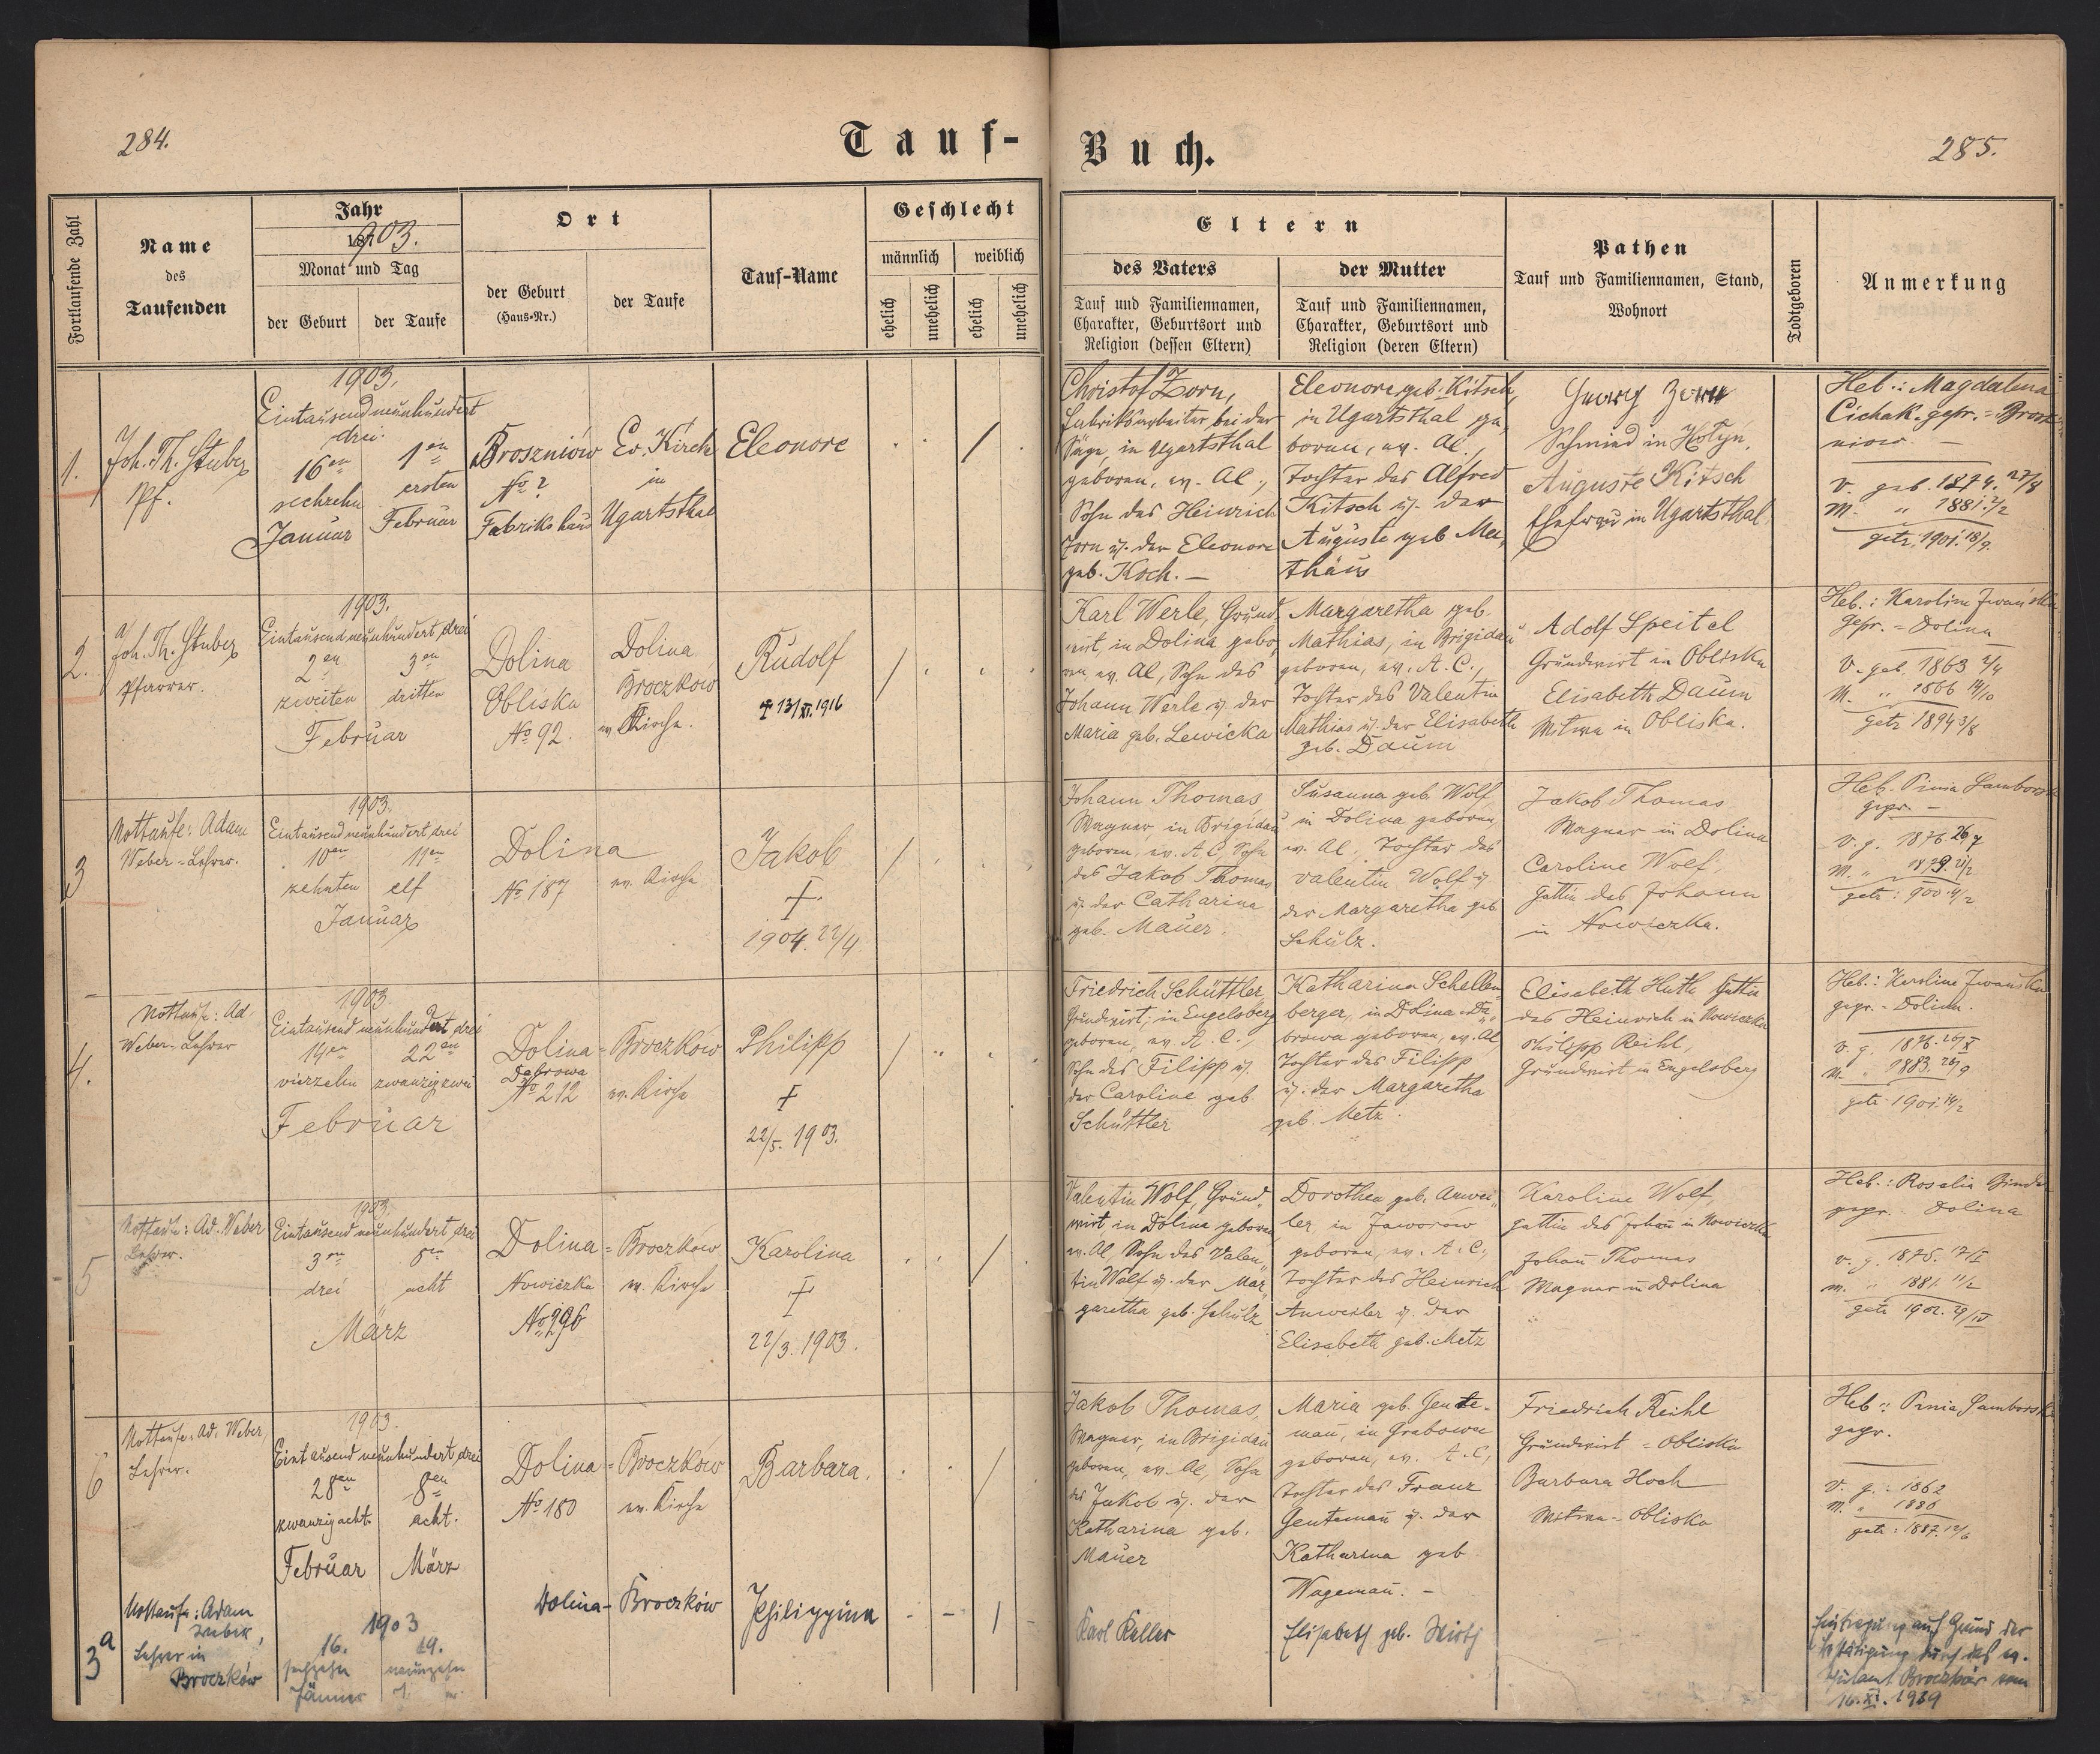 284.
Tauf-
Buch.
285.
Fortlaufende Zahl
Name
des
Taufenden
Jahr
187 1903.
Monat und Tag
der Geburt
der Taufe
Ort
der Geburt
(Haus-Nr.)
der Taufe
Tauf-Name
Geschlecht
männlich
weiblich
ehelich
unehelich
ehelich
unehelich
Eltern
des Vaters
Tauf und Familiennamen,
Charakter, Geburtsort und
Religion (dessen Eltern)
der Mutter
Tauf und Familiennamen,
Charakter, Geburtsort und
Religion (deren Eltern)
Pathen
Tauf und Familiennamen, Stand,
Wohnort
Todtgeboren
Anmerkung
1.
Joh. Th. Stuber
Pf.
1903.
Eintausendneunhundert
drei.
16en
sechzehn
Januar
1en
ersten
Februar
Broszniów
No ?
Fabrikshaus
Ev. Kirche
in
Ugartsthal
Eleonore
/
Christof Zorn,
Fabriksarbeiter bei der
Säge, in Ugartsthal
geboren, ev. Al.,
Sohn des Heinrich
Zorn u. der Eleonore
geb. Koch. —
Eleonore geb. Kitsch,
in Ugartsthal ge-
boren, ev. Al.,
Tochter des Alfred
Kitsch u. der
Auguste geb Ma-
thäus
Georg Zorn
Schmied in Hołyn,
Auguste Kitsch
Ehefrau in Ugartsthal
Heb.: Magdalena
Cichak. gepr. = Brosz
niow. —
V. geb. 1874. 27/8
M. " 1881. 2/2
getr. 1901. 18/9.
2.
Joh. Th. Stuber
Pfarrer.
1903.
Eintausendneunhundert drei
2en
zweiten
3en
dritten
Februar
Dolina
Obliska
No 92.
Dolina
Broczków
ev. Kirche.
Rudolf
† 13/XI. 1916
/
Karl Werle, Grund-
wirt, in Dolina gebo-
ren, ev. Al, Sohn des
Johann Werle u. der
Maria geb. Lewicka
Margaretha geb.
Mathias, in Brigidau
geboren, ev. A. C.,
Tochter des Valentin
Mathias u. der Elisabeth
geb. Daum
Adolf Speitel
Grundwirt in Obliska
Elisabeth Daum
Witwe in Obliska.
Heb.: Karoline Iwańska
Gepr. = Dolina
V. geb. 1863 2/4
M. " 1866 14/10
getr 1894 3/8
3
Nottaufe: Adam
Weber = Lehrer.
1903.
Eintausendneunhundert drei
10en
zehnten
11en
elf
Januar
Dolina
No 187
ev. Kirche
Jakob
†
1904. 22/4.
/
Johann Thomas,
Wagner, in Brigidau
geboren, ev. A. C, Sohn
des Jakob Thomas
u. der Catharina
geb. Mauer.
Susanna geb. Wolf,
in Dolina geboren,
ev. Al., Tochter des
Valentin Wolf u
der Margaretha geb
Schulz.
Jakob Thomas
Wagner in Dolina
Caroline Wolf,
Gattin des Johann
in Nowiczka.
Heb. Pinia Samborska
gepr. —
V. g. 1876. 26/7
M. " 1879 21/2
getr: 900. 4/2
4.
Nottaufe: Ad.
Weber-Lehrer
1903.
Eintausend neunhundert drei
14en
vierzehn
22en
zwanzigzwei
Februar
Dolina =
Dąbrowa
No 212
Broczków
ev. Kirche
Philipp
†
22/5. 1903.
/
Friedrich Schüttler,
Grundwirt, in Engelsberg
geboren, ev A. C.,
Sohn des Filipp u.
der Caroline geb
Schüttler
Katharina Schellen-
berger, in Dolina-Da-
browa geboren, ev. Al,
Tochter des Filipp
u. der Margaretha
geb. Metz.
Elisabeth Huth Gattin
des Heinrich in Nowiczka
Philipp Reihl,
Grundwirt in Engelsberg
Heb.: Karoline Iwańska
gepr. - Dolina.
V. g. 1876. 26/X
M. " 1883. 26/9
getr 1901. 14/2
5
Nottaufe: Ad. Weber
Lehrer.
1903.
Eintausend neunhundert drei
3en
drei
8en
acht
März
Dolina =
Nowiczka
No 296
Broczków
ev. Kirche
Karolina
†
22/3. 1903.
/
Valentin Wolf, Grund-
wirt, in Dolina geboren
ev. Al, Sohn des Valen-
tin Wolf u. der Mar-
garetha geb. Schulz
Dorothea geb. Anwei-
ler in Jaworów
geboren, ev. A. C.,
Tochter des Heinrich
Anweiler u. der
Elisabeth geb. Metz
Karoline Wolf,
Gattin des Johañ in Nowiczka
Johañ Thomas
Wagner in Dolina
Heb.: Rosalia Binder
gepr. Dolina
V. g. 1875.
M. " 1881. 11/2
getr 1902. 29/IV
6
Nottaufe: Ad. Weber,
Lehrer.
1903.
Eintausend neunhundert drei
28en
zwanzigacht.
Februar
8en
acht.
März
Dolina =
No 180
Broczków
ev. Kirche
Barbara.
/
Jakob Thomas,
Wagner, in Brigidau
geboren, ev. Al, Sohn
des Jakob u. der
Katharina geb.
Mauer
Maria geb. Gente-
mañ, in Grabowa
geboren, ev. A. C,
Tochter des Franz
Gentemañ u. der
Katharina geb
Wagemañ. —
Friedrich Reihl
Grundwirt = Obliska
Barbara Hoch
Witwe = Obliska
Heb.: Pinia Samborska
gepr.
V. g. 1862
M. " 1886
getr: 1887. 12/6
3a
Nottaufe: Adam
Weber,
Lehrer in
Broczków
1903
16.
sechzehn
Jänner
19.
neunzehn
Dolina-
Broczków
Philippina
Karl Keller
Elisabeth geb. Wirth
Eintragung auf Grund der
Bestätigung durch das ev.
Pfarramt Broczków vom
16. XI. 1939